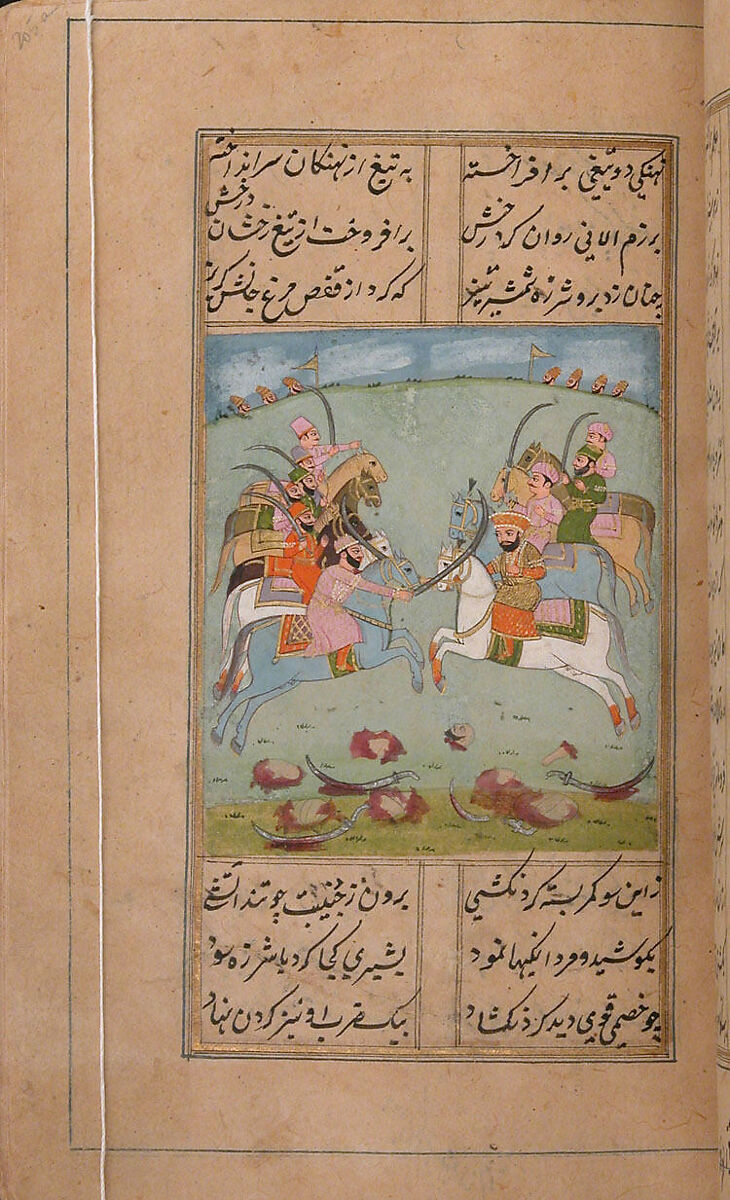 205a
نهنگی دو تیغی برافراخته به تیغ از نهنگان سر انداخته
برزم الانی روان کرد رخش برافروخت از تیغ رخشان درخش
چنان زد برو شرزه شمشیر تیز که کرد از قفص مرغ جانش گریز
ز این سو کمر بسته گردنکشی برون زد جنیبت چو تند آتشی
بکوشید و مردانگیها نمود بشیری کجا کرد با شرزه سود
چو خصمی قوی دید گردن گشاد بیک ضرب او نیز گردن نهاد